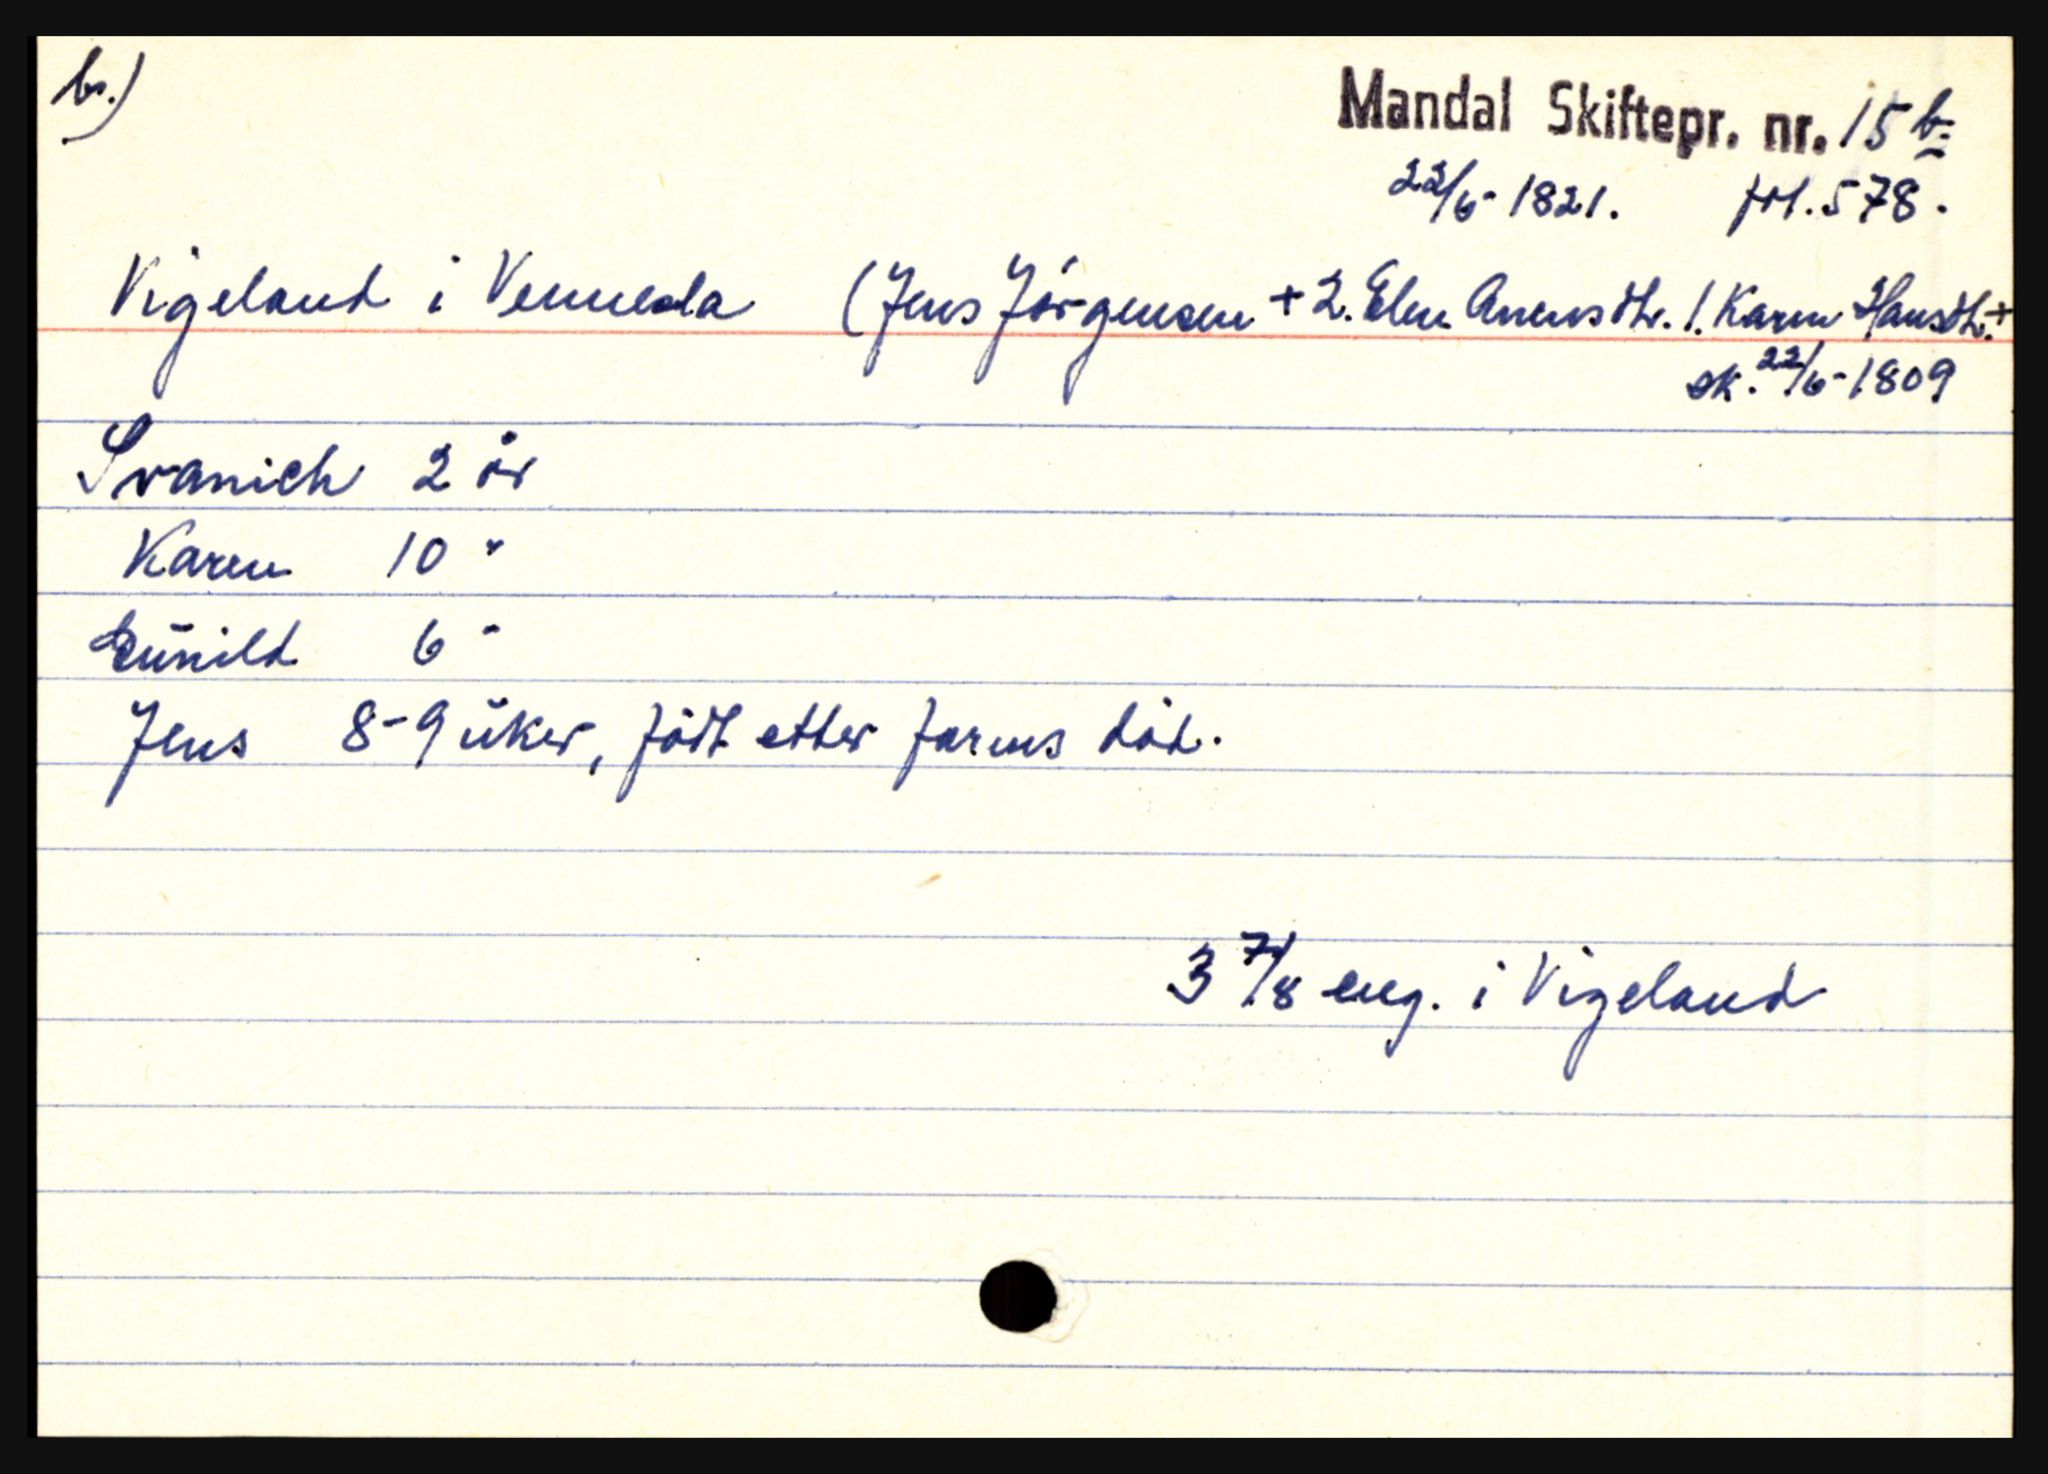 b.)
Mandal Skiftepr. nr. 15 b.
22/6- 1821. fol. 578.
Vigeland i Vennesla (Jens Jörgensen + 2. Elen Anensdtr. 1. Karen Hansdtr. +
sk. 22/6- 1809
Svanich 2 år
Karen 10 "
Gunild 6 "
Jens 8-9 uker, födt etter farens död.
3 7/8 eng. i Vigeland